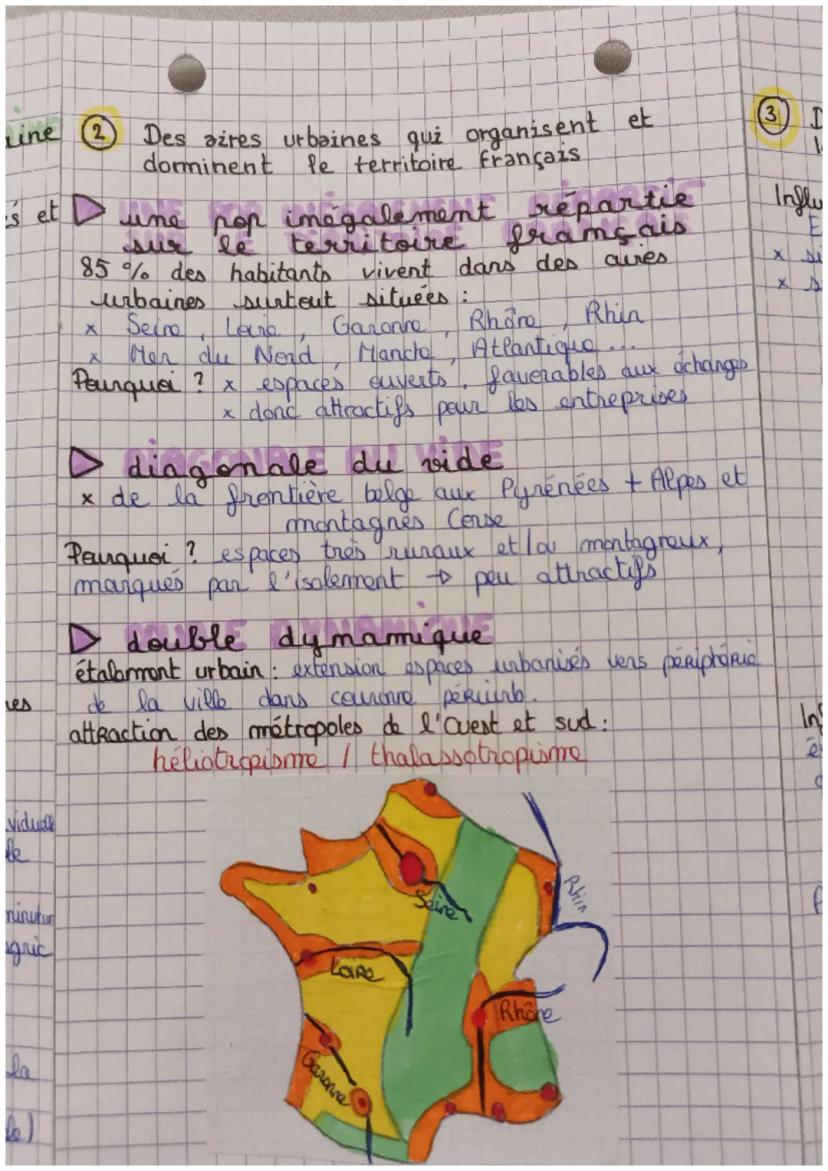 ②
Des aires urbaines qui organisent et
dominent le territoire français
une pop inégalement répartie
sur le territoire français
85 % des habitants vivent dans des aires
urbaines surtout situées :
x Seine, Loire, Garonne, Rhône, Rhin
x Mer du Nord, Manche, Atlantique...
Pourquoi ? x espaces ouverts, favorables aux échanges
x donc attractifs pour les entreprises
diagonale du vide
x de la frontière belge aux Pyrénées + Alpes et
montagnes Corse
Pourquoi ? espaces très ruraux et/ou montagneux,
marqués par l'isolement → peu attractifs
double dynamique
étalement urbain : extension espaces urbanisés vers périphérie
de la ville dans couronne périurb.
attraction des métropoles de l'Ouest et sud :
héliotropisme / thalassotropisme
Seine
Rhin
Loire
Rhône
Garonne
és et
③
Influ
la